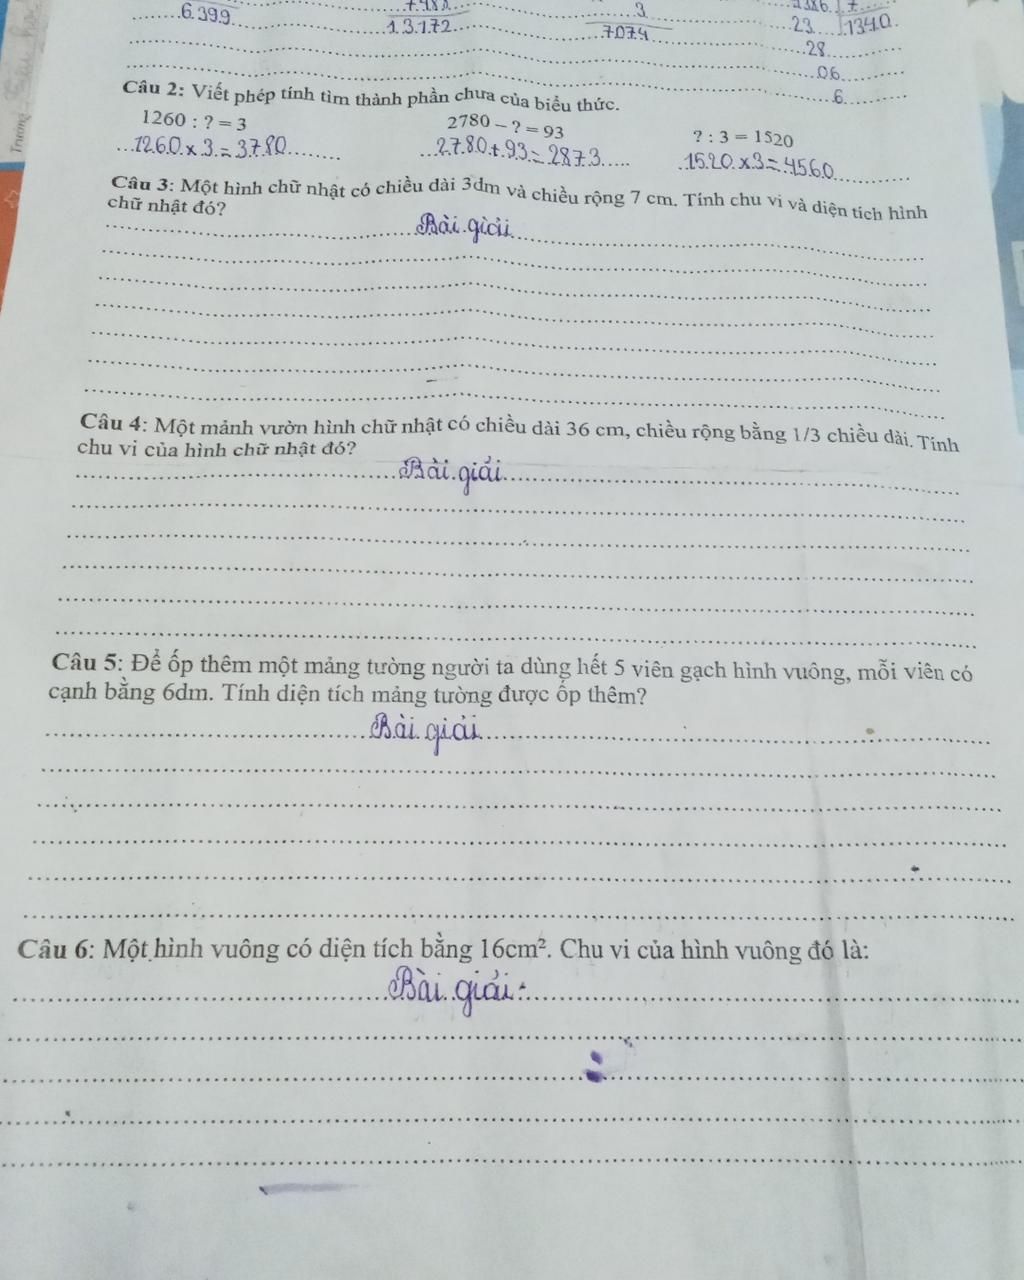 6399
13172
3
7074
2386 7
23 1340
28
06
6
Câu 2: Viết phép tính tìm thành phần chưa của biểu thức.
1260 : ? = 3 2780 – ? = 93 ? : 3 = 1520
1260 x 3 = 3780 2780 + 93 = 2873 1520 x 3 = 4560
Câu 3: Một hình chữ nhật có chiều dài 3dm và chiều rộng 7 cm. Tính chu vi và diện tích hình
chữ nhật đó?
Bài giải
Câu 4: Một mảnh vườn hình chữ nhật có chiều dài 36 cm, chiều rộng bằng 1/3 chiều dài. Tính
chu vi của hình chữ nhật đó?
Bài giải
Câu 5: Để ốp thêm một mảng tường người ta dùng hết 5 viên gạch hình vuông, mỗi viên có
cạnh bằng 6dm. Tính diện tích mảng tường được ốp thêm?
Bài giải
Câu 6: Một hình vuông có diện tích bằng 16cm². Chu vi của hình vuông đó là:
Bài giải: